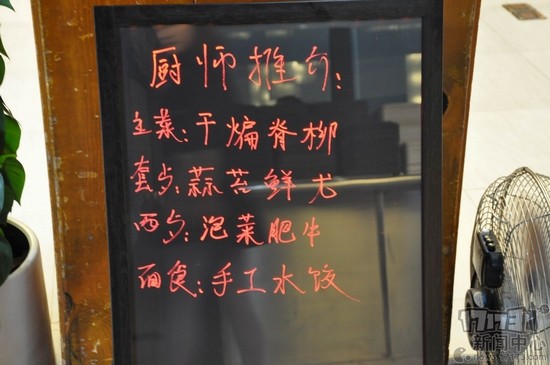 厨师推介:
主菜:干煸脊柳
套台:蒜苔鲜尤
西台:泡菜肥牛
面食:手工水饺
17173
新闻中心